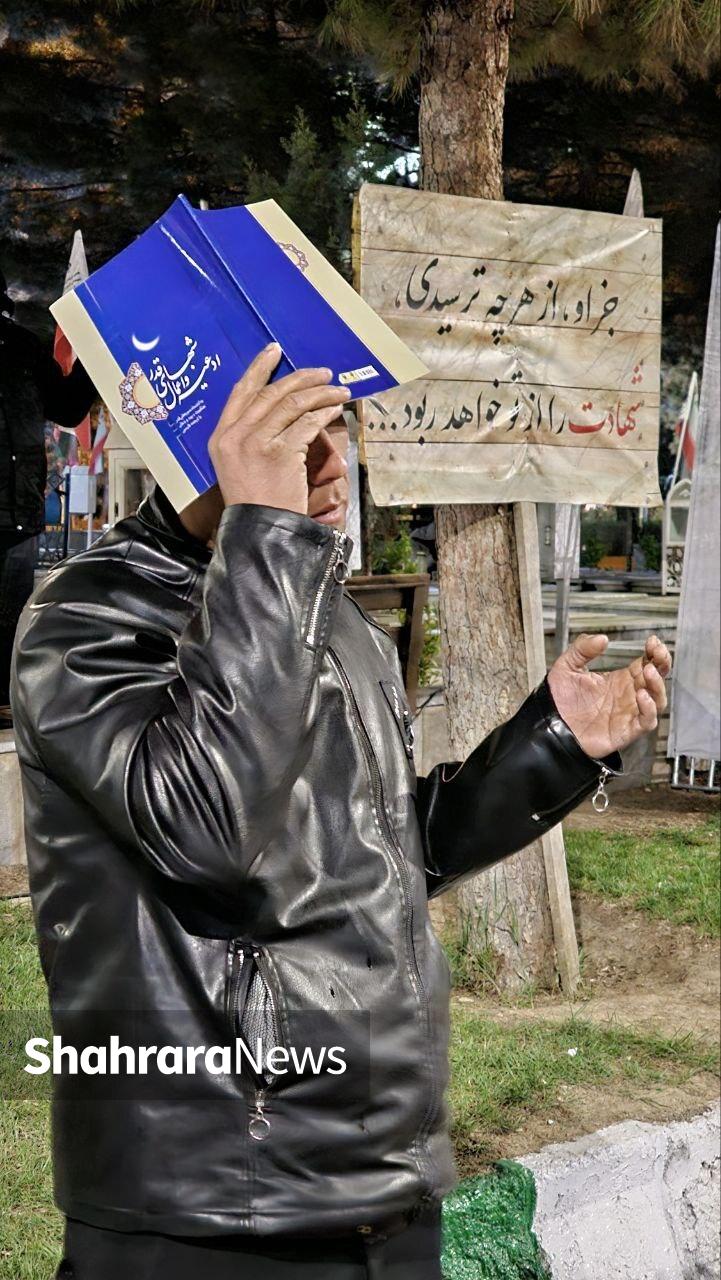 ادعیه و اعمال
شبهای قدر
جز او، از هر چه ترسیدی،
شهادت را از تو خواهد ربود...
ShahraraNews